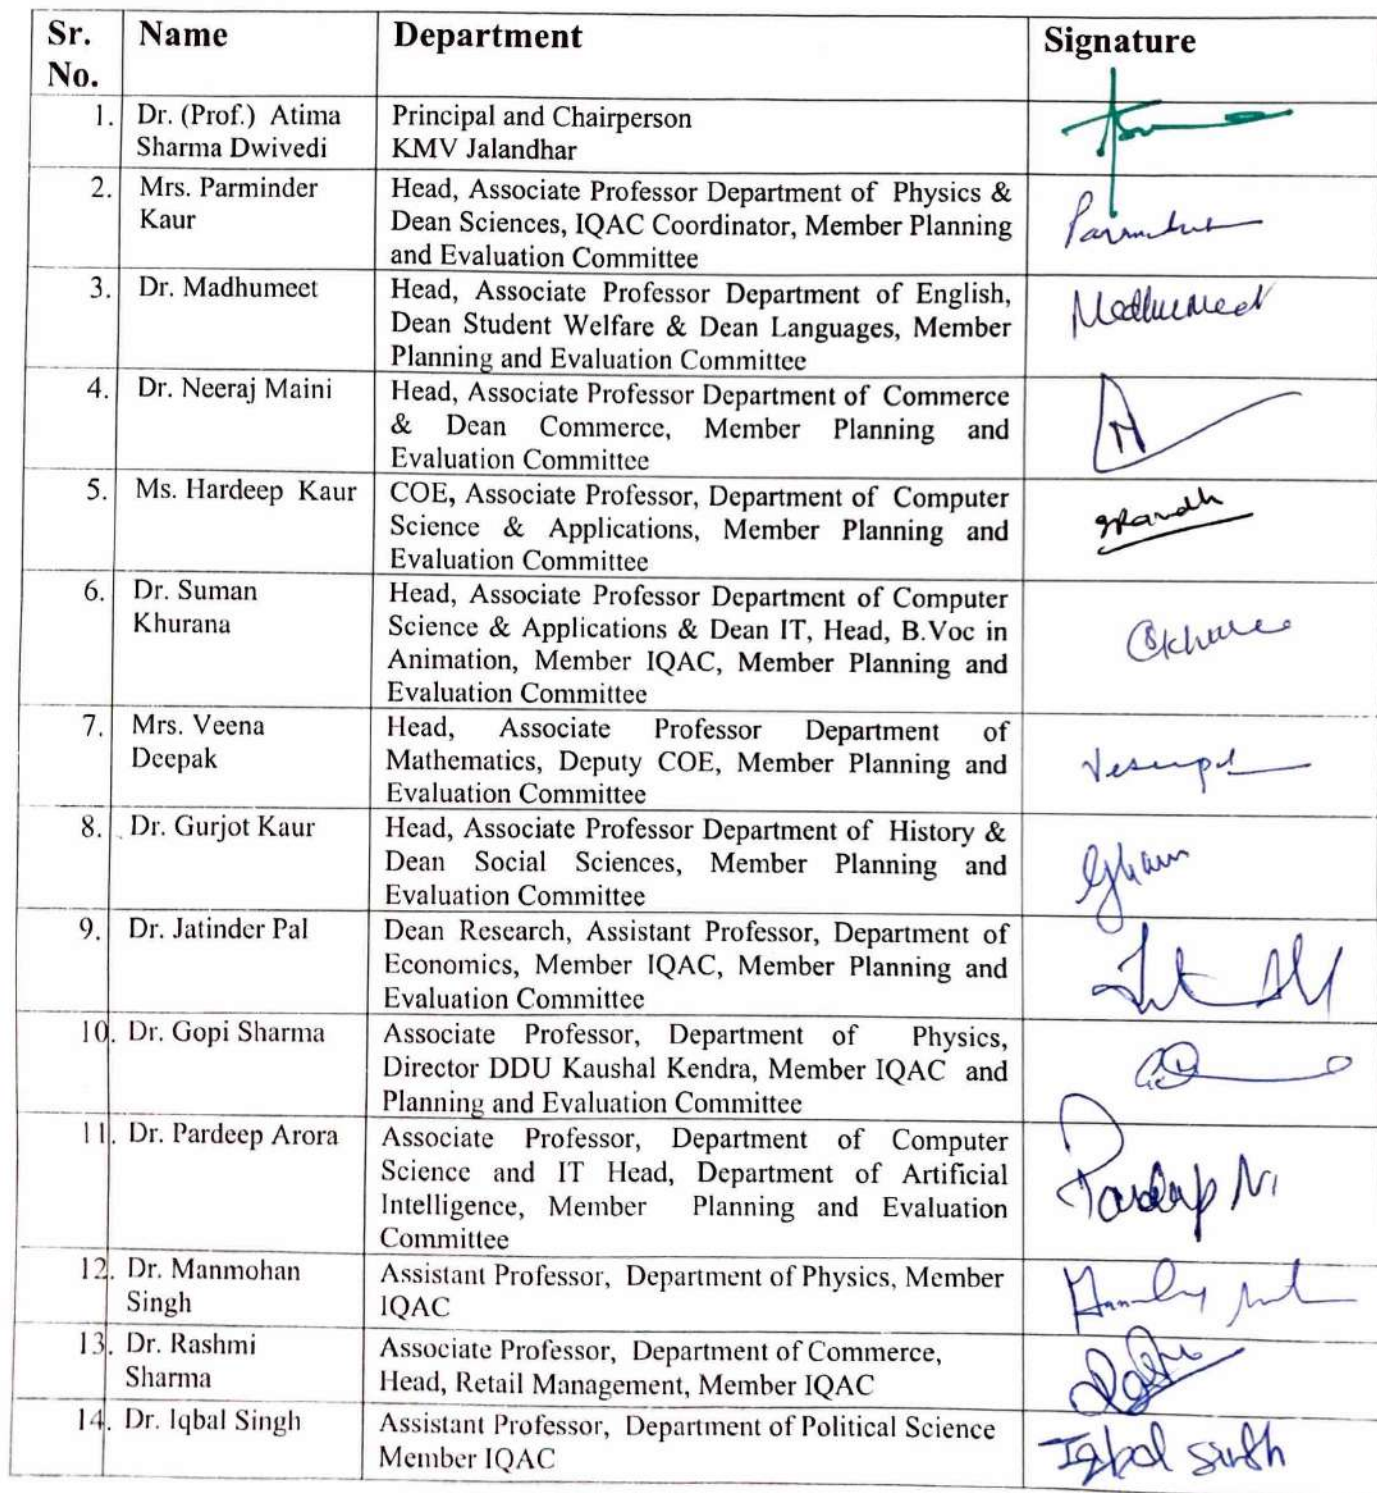 Sr. No. Name Department Signature
1. Dr. (Prof.) Atima Sharma Dwivedi
Principal and Chairperson
KMV Jalandhar
2. Mrs. Parminder Kaur
Head, Associate Professor Department of Physics &
Dean Sciences, IQAC Coordinator, Member Planning
and Evaluation Committee
3. Dr. Madhumeet
Head, Associate Professor Department of English,
Dean Student Welfare & Dean Languages, Member
Planning and Evaluation Committee
Madhumeet
4. Dr. Neeraj Maini
Head, Associate Professor Department of Commerce
& Dean Commerce, Member Planning and
Evaluation Committee
5. Ms. Hardeep Kaur
COE, Associate Professor, Department of Computer
Science & Applications, Member Planning and
Evaluation Committee
6. Dr. Suman Khurana
Head, Associate Professor Department of Computer
Science & Applications & Dean IT, Head, B.Voc in
Animation, Member IQAC, Member Planning and
Evaluation Committee
7. Mrs. Veena Deepak
Head, Associate Professor Department of
Mathematics, Deputy COE, Member Planning and
Evaluation Committee
8. Dr. Gurjot Kaur
Head, Associate Professor Department of History &
Dean Social Sciences, Member Planning and
Evaluation Committee
9. Dr. Jatinder Pal
Dean Research, Assistant Professor, Department of
Economics, Member IQAC, Member Planning and
Evaluation Committee
10. Dr. Gopi Sharma
Associate Professor, Department of Physics,
Director DDU Kaushal Kendra, Member IQAC and
Planning and Evaluation Committee
11. Dr. Pardeep Arora
Associate Professor, Department of Computer
Science and IT Head, Department of Artificial
Intelligence, Member Planning and Evaluation
Committee
12. Dr. Manmohan Singh
Assistant Professor, Department of Physics, Member
IQAC
13. Dr. Rashmi Sharma
Associate Professor, Department of Commerce,
Head, Retail Management, Member IQAC
14. Dr. Iqbal Singh
Assistant Professor, Department of Political Science
Member IQAC
Iqbal Singh